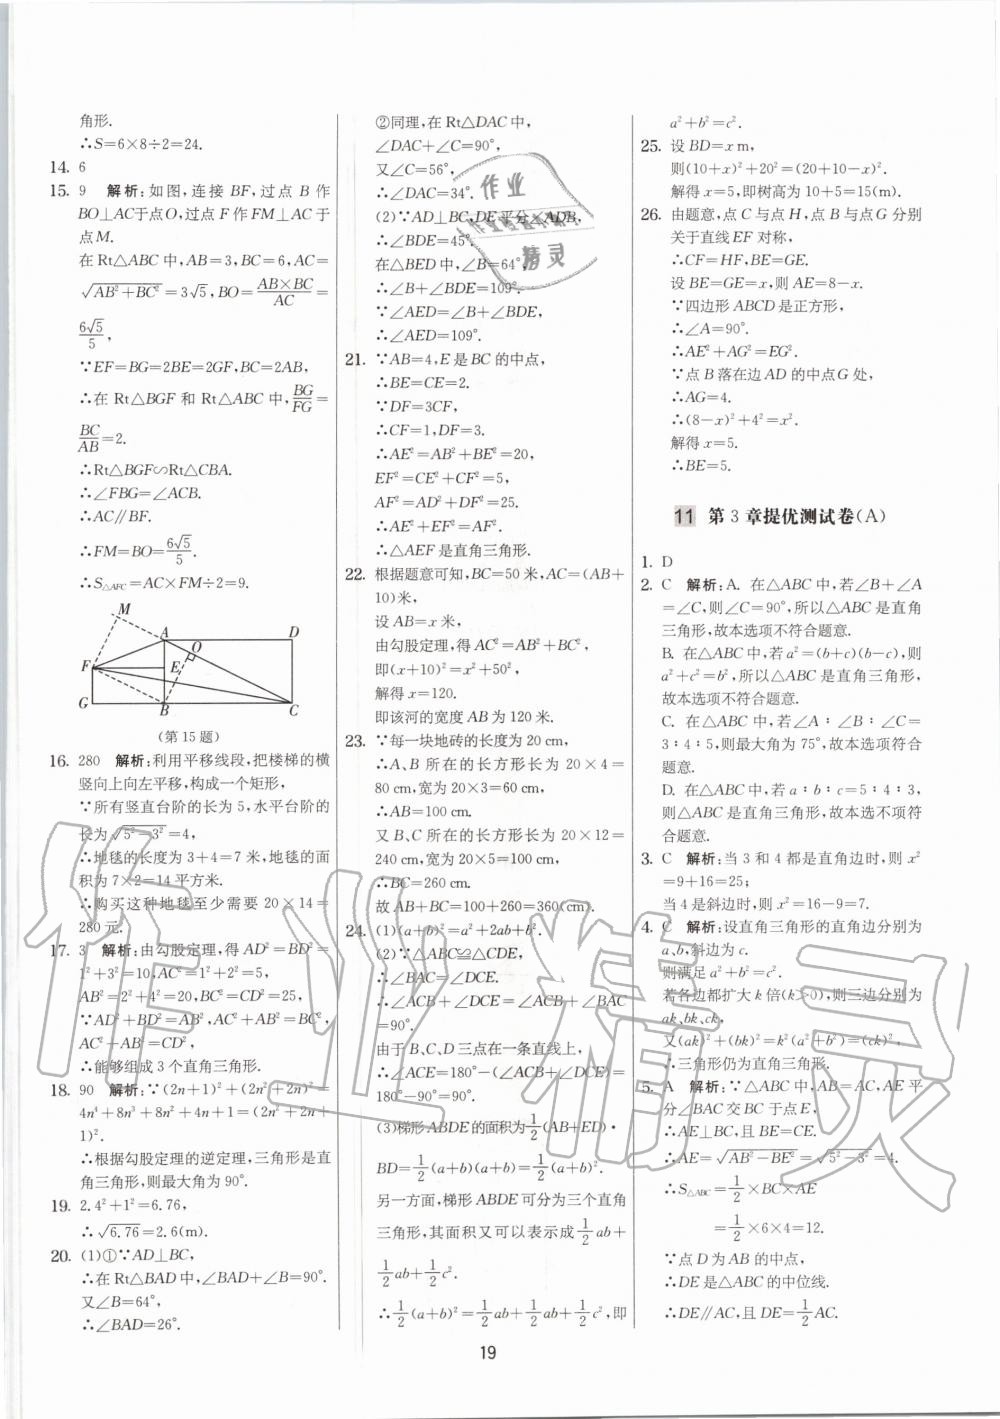 角形.
∴S=6×8÷2=24.
14. 6
15. 9 解析:如图,连接 BF,过点 B 作
BO⊥AC于点O,过点 F 作FM⊥AC 于
点M.
在 Rt△ABC 中,AB=3,BC=6,AC=
√(AB²+BC²)=3√5,BO=(AB×BC)/AC=
6√5/5,
∵EF=BG=2BE=2GF,BC=2AB,
∴在 Rt△BGF 和 Rt△ABC 中,BG/FG=
BC/AB=2.
∴Rt△BGF∽Rt△CBA.
∴∠FBG=∠ACB.
∴AC∥BF.
∴FM=BO=6√5/5.
∴S△AFC=AC×FM÷2=9.
M
A D
O
F E
G B C
(第 15 题)
16. 280 解析:利用平移线段,把楼梯的横
竖向上向左平移,构成一个矩形,
∵所有竖直台阶的长为 5,水平台阶的
长为√(5²−3²)=4,
∴地毯的长度为 3+4=7 米,地毯的面
积为 7×2=14 平方米.
∴购买这种地毯至少需要 20×14=
280 元.
17. 3 解析:由勾股定理,得 AD²=BD²=
1²+3²=10,AC²=1²+2²=5,
AB²=2²+4²=20,BC²=CD²=25,
∵AD²+BD²=AB²,AC²+AB²=BC²,
AC²+AB²=CD²,
∴能够组成 3 个直角三角形.
18. 90 解析:∵(2n+1)²+(2n²+2n)²=
4n⁴+8n³+8n²+4n+1=(2n²+2n+
1)².
∴根据勾股定理的逆定理,三角形是直
角三角形,则最大角为 90°.
19. 2.4²+1²=6.76,
∴√6.76=2.6(m).
20. (1)①∵AD⊥BC,
∴在 Rt△BAD 中,∠BAD+∠B=90°.
又∠B=64°,
∴∠BAD=26°.
②同理,在 Rt△DAC 中,
∠DAC+∠C=90°,
又∠C=56°,
∴∠DAC=34°.
(2)∵AD⊥BC,DE平分∠ADB,
∴∠BDE=45°.
在△BED 中,∠B=64°,
∴∠B+∠BDE=109°.
∵∠AED=∠B+∠BDE,
∴∠AED=109°.
21. ∵AB=4,E 是 BC 的中点,
∴BE=CE=2.
∵DF=3CF,
∴CF=1,DF=3.
∴AE²=AB²+BE²=20,
EF²=CE²+CF²=5,
AF²=AD²+DF²=25.
∴AE²+EF²=AF².
∴△AEF 是直角三角形.
22. 根据题意可知,BC=50 米,AC=(AB+
10)米,
设 AB=x 米,
由勾股定理,得 AC²=AB²+BC²,
即(x+10)²=x²+50²,
解得 x=120.
即该河的宽度 AB 为 120 米.
23. ∵每一块地砖的长度为 20 cm,
∴A、B 所在的长方形长为 20×4=
80 cm,宽为 20×3=60 cm,
∴AB=100 cm.
又 B、C 所在的长方形长为 20×12=
240 cm,宽为 20×5=100 cm,
∴BC=260 cm.
故 AB+BC=100+260=360(cm).
24. (1)(a+b)²=a²+2ab+b².
(2)∵△ABC≌△CDE,
∴∠BAC=∠DCE.
∴∠ACB+∠DCE=∠ACB+∠BAC
=90°.
由于 B、C、D 三点在一条直线上,
∴∠ACE=180°−(∠ACB+∠DCE)=
180°−90°=90°.
(3)梯形 ABDE 的面积为1/2(AB+ED)·
BD=1/2(a+b)(a+b)=1/2(a+b)².
另一方面,梯形 ABDE 可分为三个直角
三角形,其面积又可以表示成1/2ab+
1/2ab+1/2c².
∴1/2(a+b)²=1/2ab+1/2ab+1/2c²,即
a²+b²=c².
25. 设 BD=x m,
则(10+x)²+20²=(20+10−x)²,
解得 x=5,即树高为 10+5=15(m).
26. 由题意,点 C 与点 H,点 B 与点 G 分别
关于直线 EF 对称,
∴CF=HF,BE=GE.
设 BE=GE=x,则 AE=8−x.
∵四边形 ABCD 是正方形,
∴∠A=90°.
∴AE²+AG²=EG².
∵点 B 落在边 AD 的中点G 处,
∴AG=4.
∴(8−x)²+4²=x².
解得 x=5.
∴BE=5.
11 第 3 章提优测试卷(A)
1. D
2. C 解析:A. 在△ABC 中,若∠B+∠A
=∠C,则∠C=90°,所以△ABC 是直角
三角形,故本选项不符合题意.
B. 在△ABC 中,若 a²=(b+c)(b−c),则
a²+c²=b²,所以△ABC 是直角三角形,
故本选项不符合题意.
C. 在△ABC 中,若∠A∶∠B∶∠C=
3∶4∶5,则最大角为 75°,故本选项符合
题意.
D. 在△ABC 中,若 a∶b∶c=5∶4∶3,
则△ABC 是直角三角形,故本选不项符
合题意.
3. C 解析:当 3 和 4 都是直角边时,则 x²
=9+16=25;
当 4 是斜边时,则 x²=16−9=7.
4. C 解析:设直角三角形的直角边分别为
a、b,斜边为 c.
则满足 a²+b²=c².
若各边都扩大 k 倍(k>0),则三边分别为
ak、bk、ck,
又(ak)²+(bk)²=k²(a²+b²)=(ck)²,
∴三角形仍为直角三角形.
5. A 解析:∵△ABC 中,AB=AC,AE 平
分∠BAC 交 BC 于点 E,
∴AE⊥BC,且 BE=CE.
∴AE=√(AB²−BE²)=√(5²−3²)=4.
∴S△ABC=1/2×BC×AE
=1/2×6×4=12.
∵点 D 为 AB 的中点,
∴DE 是△ABC 的中位线.
∴DE∥AC,且 DE=1/2AC.
19
作业
精灵
作业精灵